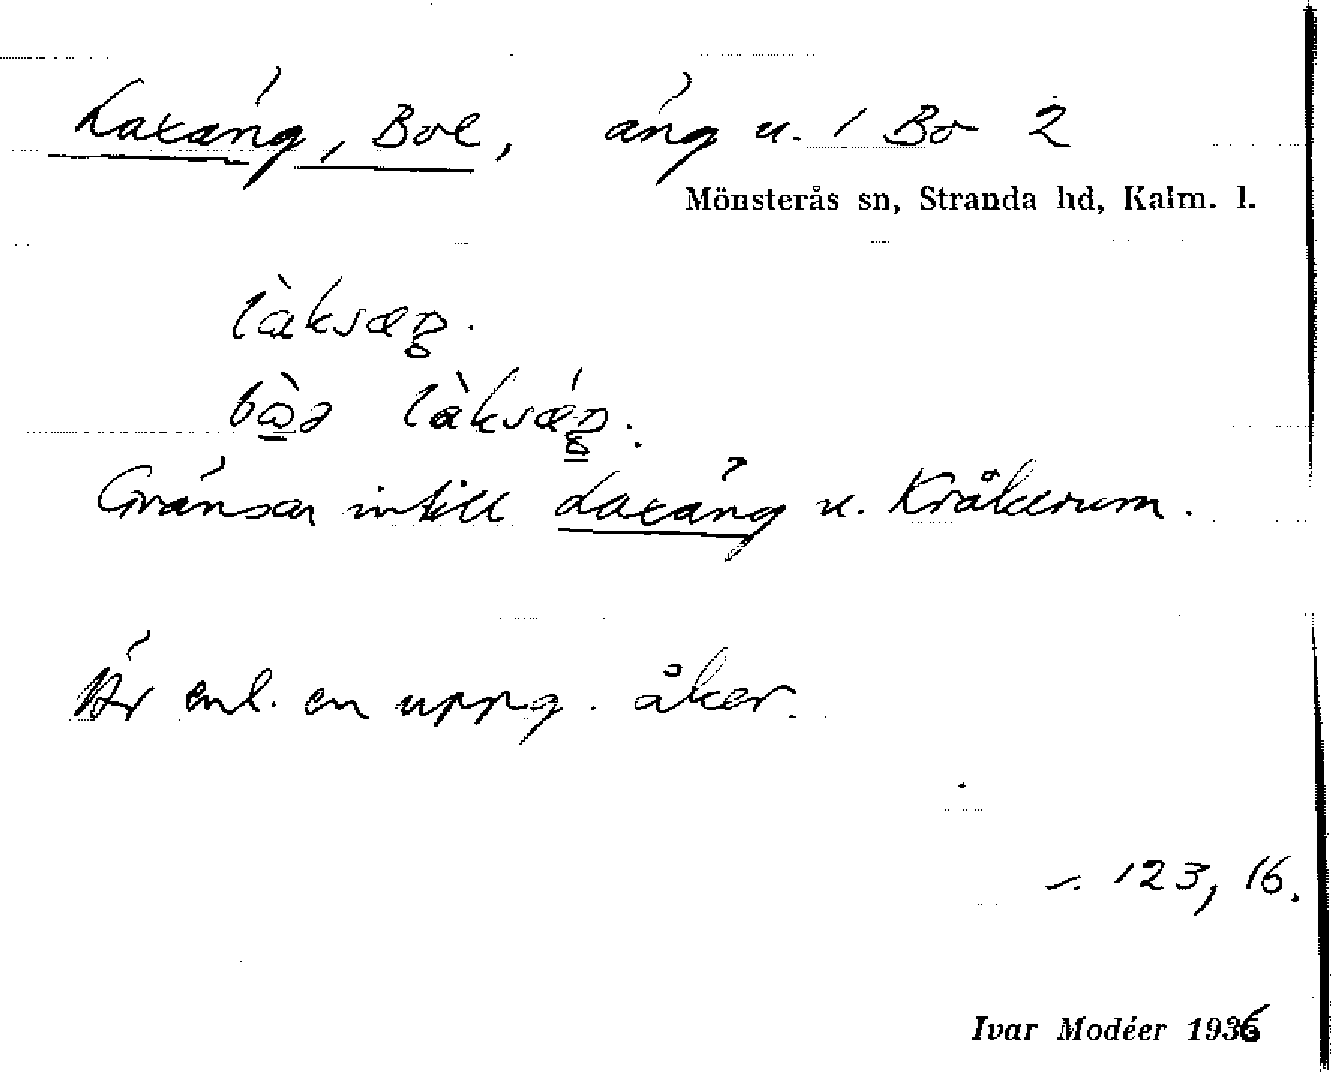 Laxäng, Boe, äng u. 1 Bo 2
Mönsterås sn, Stranda hd, Kalm. l.
làksæŋ.
bò̲ə làksǽŋ.
Gränsar intill Laxäng u. Kråkerum.
Är enl. en uppg. åker.
123, 16.
Ivar Modéer 1936